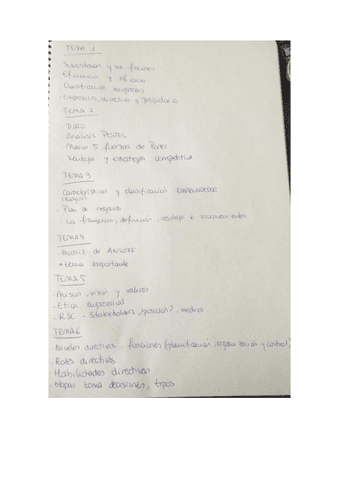 TEMA 1
Subsistemas y sus funciones
Eficiencia y eficacia
Clasificación empresas
Empresario, directivo y propietario
TEMA 2
· DAFO
Análisis PESTEL
Marco 5 fuerzas de Porter
Ventaja y estrategia competitiva
TEMA 3
Características y clasificación EMPRENDEDOR
· Plan de negocio
· La franquicia, definición, ventajas e inconvenientes
TEMA 4
· Matriz de ANSOFF
* tema importante
TEMA 5
· Misión, visión y valores
· Ética empresarial
· RSC - Stakeholders, ¿posición?, medios
TEMA 6
· Niveles directivos - funciones (planificación, organización y control)
· Roles directivos
· Habilidades directivas
· Etapas toma decisiones, tipos